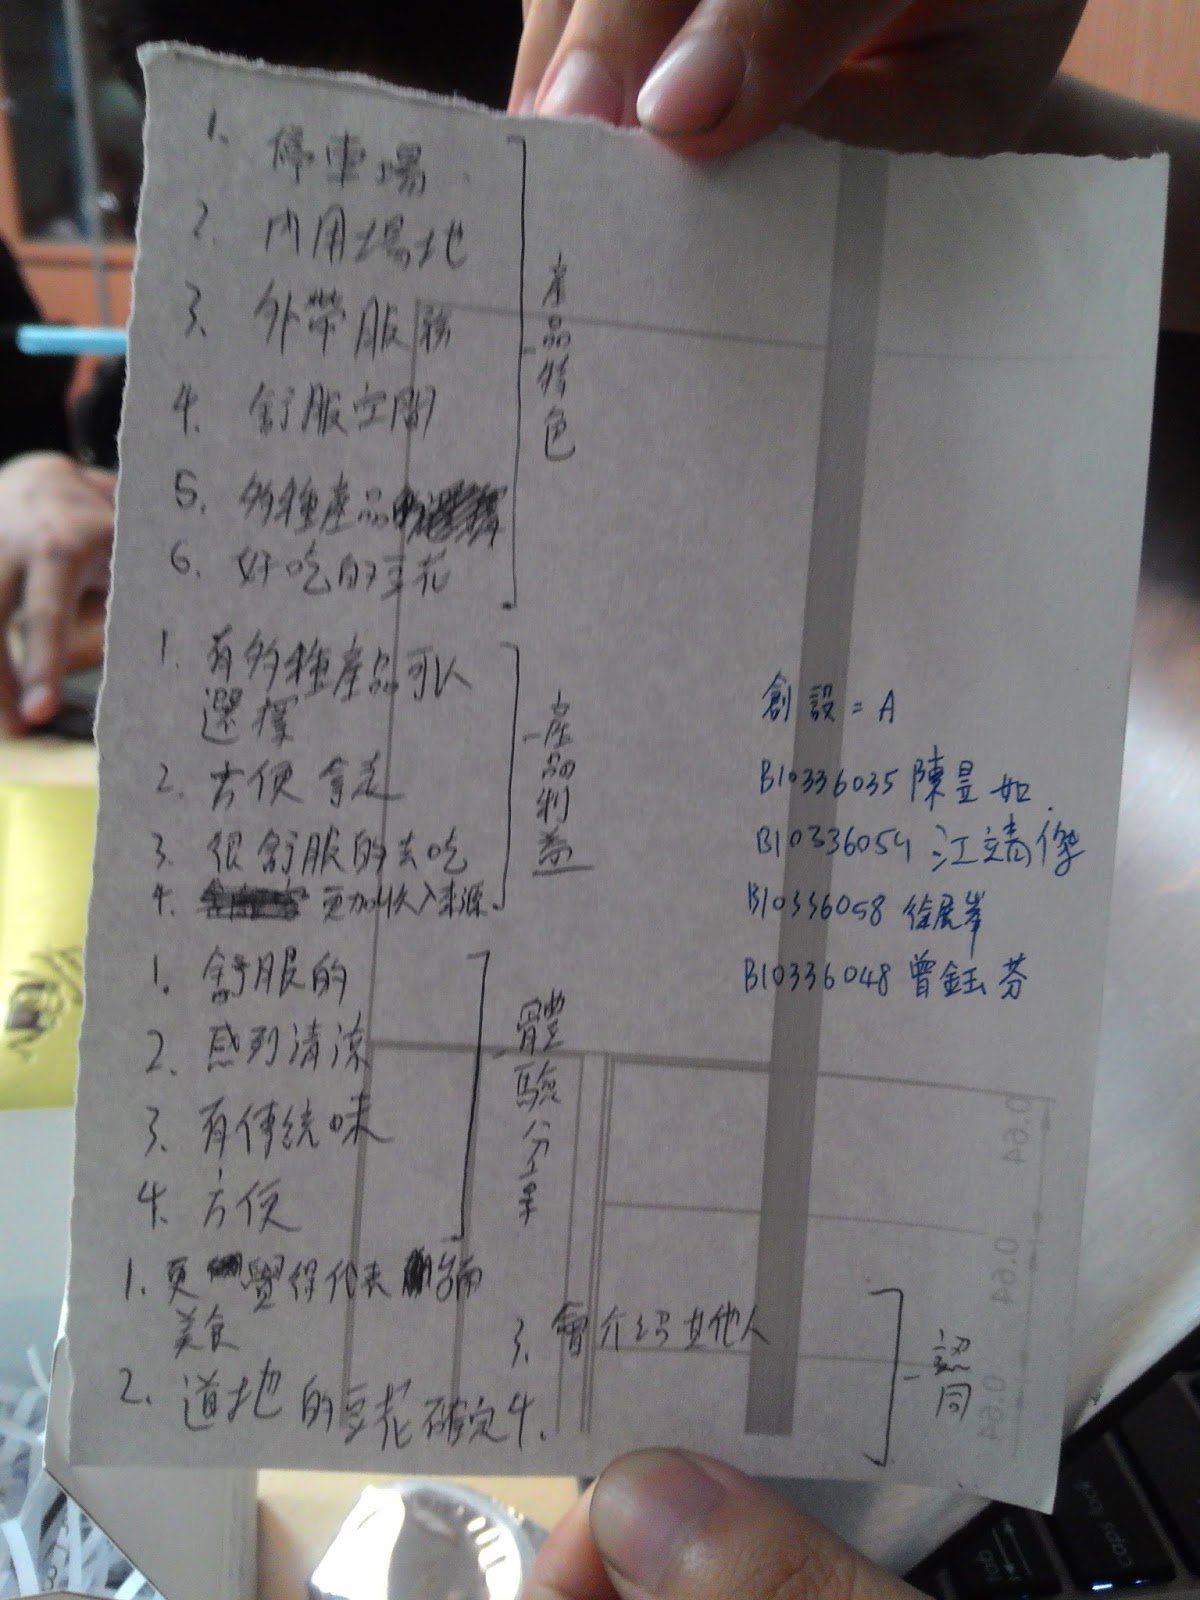 1. 停車場
2. 內用場地
3. 外帶服務
4. 舒服空間
5. 多種產品
6. 好吃的豆花
產品特色
1. 有多種產品可以
選擇
2. 方便拿走
3. 很舒服的去吃
4. 更加收入來源
產品利益
1. 舒服的
2. 感到清涼
3. 有傳統味
4. 方便
體驗分享
1. 更覺得代表台南
美食
2. 道地的豆花確定
3. 會介紹其他人
4.
認同
創設二A
B10336035 陳昱如
B10336054 江靖傑
B10336058 徐展峯
B10336048 曾鈺芬
0.64
0.64
0.64
caps lock
tab